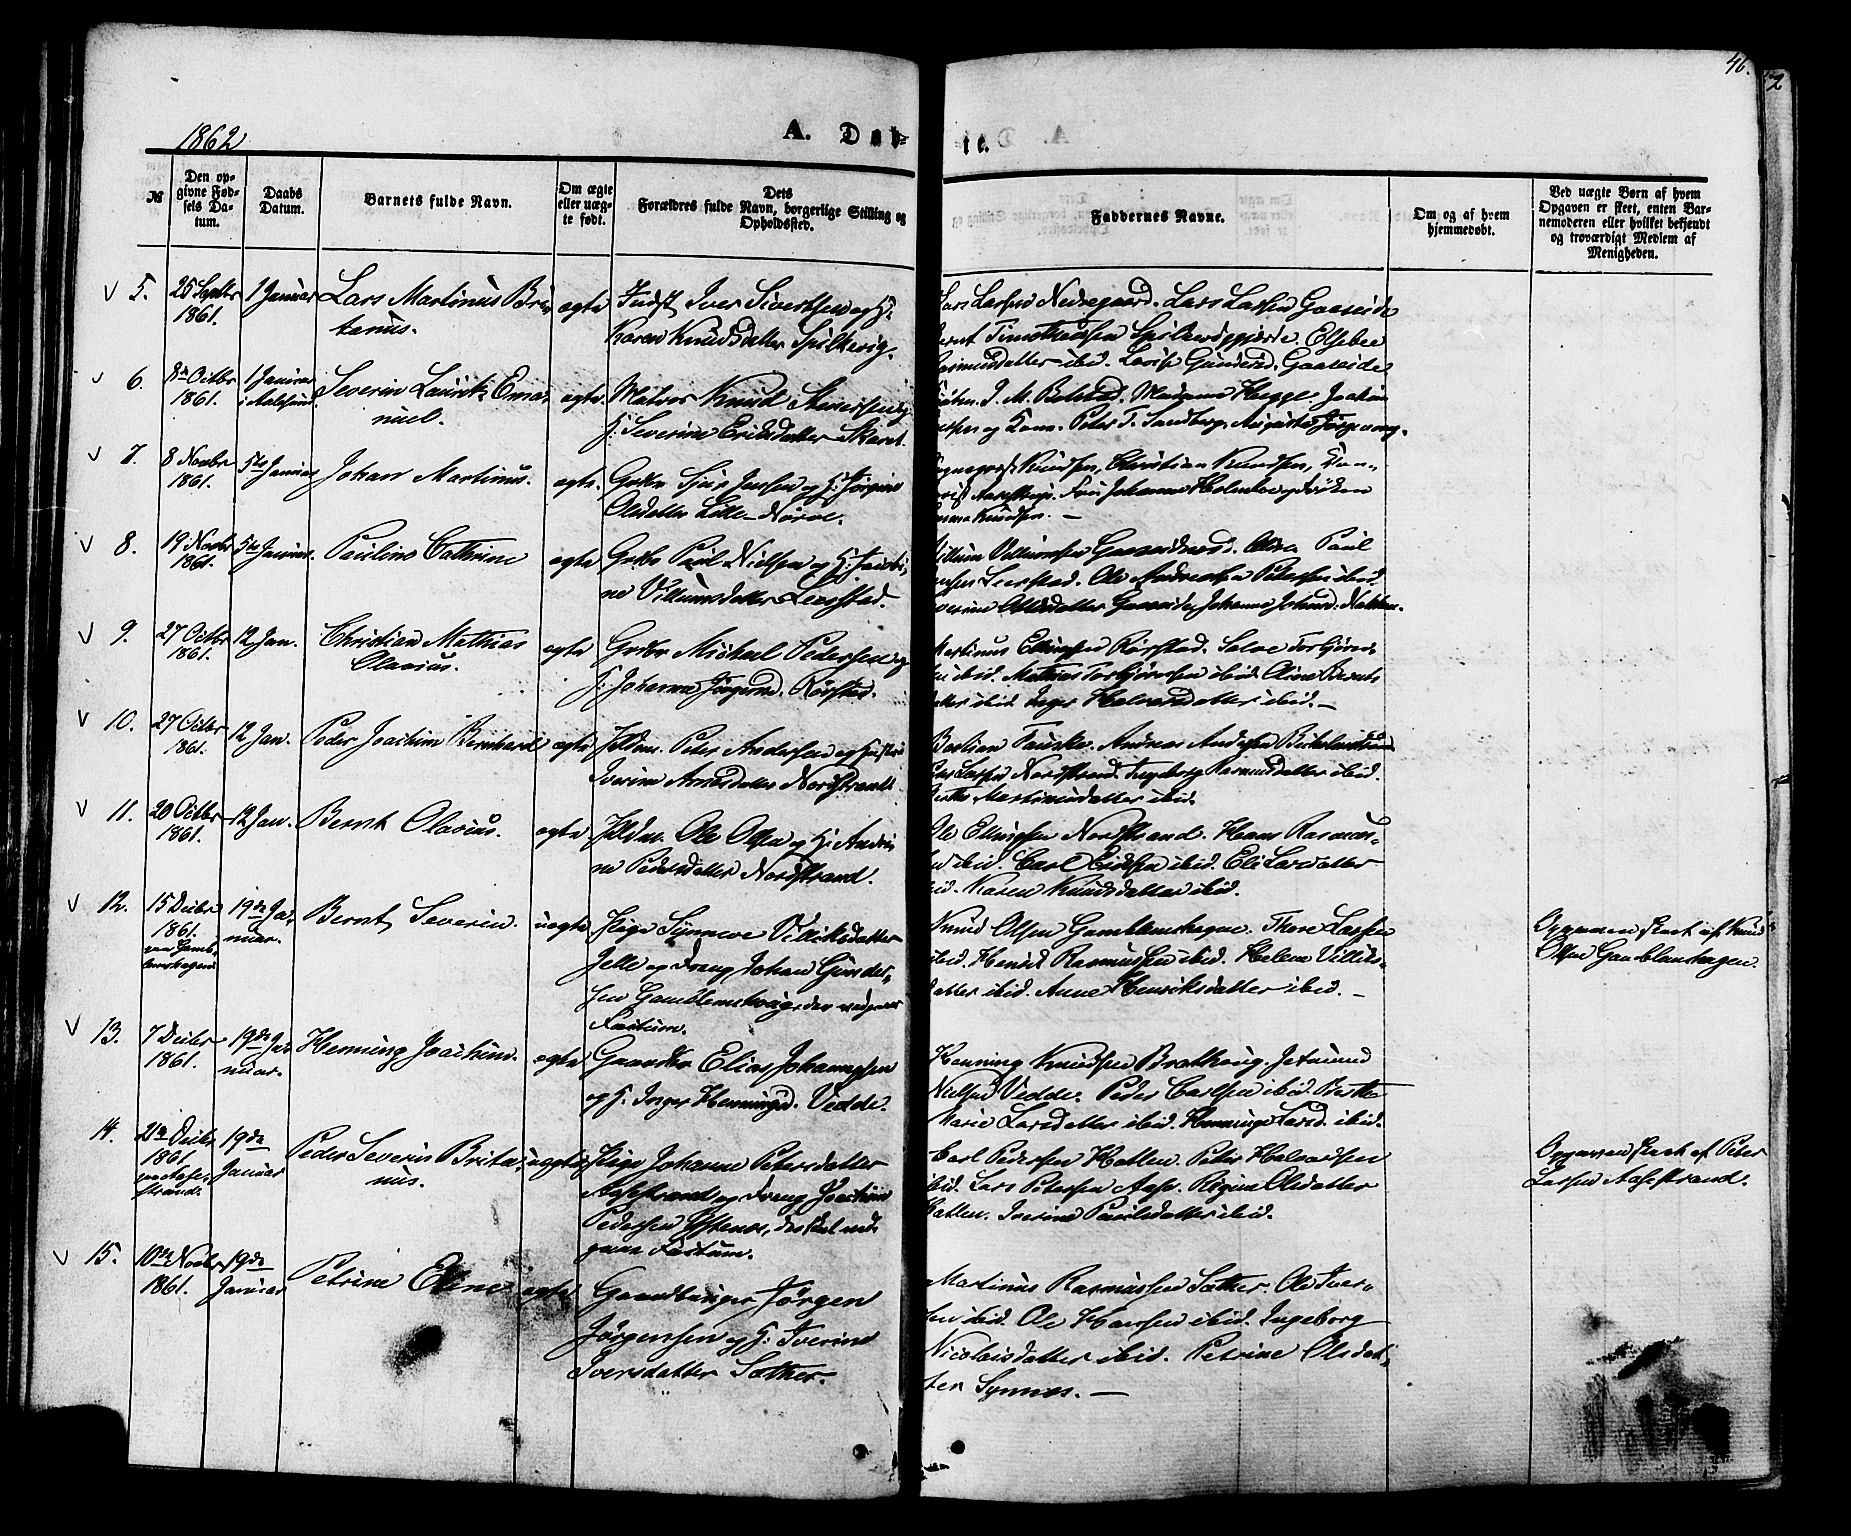 46.
2
1862
A. Døb-
te.
№
Den op-
givne Fød-
sels Da-
tum.
Daabs
Datum.
Barnets fulde Navn.
Om ægte
eller uæg-
te født.
Dets
Forældres fulde Navn, borgerlige Stilling og
Opholdssted.
Faddernes Navne.
Om og af hvem
hjemmedøbt.
Ved uægte Børn af hvem
Opgaven er skeet, enten Bar-
nemoderen eller hvilket bekjendt
og troværdigt Medlem af
Menigheden.
5.
25 Septbr
1861.
1 Januar
Lars Martinus Bri-
tanus.
ægte
Indst Iver Sivertsen og H.
Karen Knudsdatter Spilkevig.
Lars Larsen Nedregaard. Lars Larsen Gaaseide
Bernt Timotheussen Spilkeviggjerde. Elsebee
Rasmusdatter ibid. Lovise Gundersd. Gaaseide
6.
8de Octbr
1861.
1 Januar
i Aalesund.
Severin Lauritz Ema-
nuel.
ægte
Matros Knud
H. Severine Eriksdatter Skaret.
J. M. Madame Joachim
og Kone. Peter T. Sandberg. Augusta
7.
8 Novbr
1861.
5te Januar
Johan Martinus.
ægte
Grdbr Sjur Jensen og H. Jørgine
Olsdatter Lille-Nørve.
Knudsen, Christian Knudsen,
Fru Johanne
Knudsen. —
8.
19 Novbr
1861.
5te Januar.
Pauline Cathrine
ægte
Grdbr Paul Nielsen og H. Jacobi-
ne Villumsdatter Leerstad.
Villum Villumsen Gaaseidnæsd. Paul
Leerstad. Ole Andreas Petersen ibid.
Severine Olsdatter Gaaseide, Johanne Johansd. Nakken.
9.
27 Octbr
1861.
12 Jan.
Christian Mathias
Olavius.
ægte
Grdbr Michael Pedersen og
H. Johanne Jørgensd. Rørstad.
Martinus Ellingsen Rørstad. Torbjørn-
sen ibid. Mathias Torbjørnsen ibid. Oline Bernts-
datter ibid. Inger Halvorsdatter ibid. —
10.
27 Octbr
1861.
12 Jan.
Peder Joachim Bernhard
ægte
Hdm. Peter Andersen og Hustru
Iverine Arnesdatter Nordstrand.
Bastian Andreas Andersen
Lars Larsen Nordstrand. Ingeborg Rasmusdatter ibid.
Berthe Martinusdatter ibid.
11.
20 Octbr
1861.
12 Jan.
Bernt Olavius.
ægte
Hdm. Ole Olsen og H. Andri-
ne Pedersdatter Nordstrand.
Ole Ellingsen Nordstrand. Hans Rasmus-
sen ibid. Carl Eidesen ibid. Eli Larsdatter
ibid. Karen Knudsdatter ibid.
12.
15 Decbr
1861.
paa Gamb-
lemshagen.
19de Ja-
nuar.
Bernt Severin.
uægte
Pige Synneve Villiksdatter
Jelle og Dreng Johan Gunder-
sen Gamblemshaug, den
Factum.
Knud Olsen Gamblemshagen. Thore Larsen
ibid. Henrik Rasmussen ibid. Helene Villiks-
datter ibid. Anne Henriksdatter ibid. —
Opgaven skeet af Knud
Olsen Gamblemshagen.
13.
7 Decbr
1861.
19de Ja-
nuar.
Henning Joachim.
ægte
Gaardbr Elias Johannesen
og H. Inger Henningsd. Vedde.
Henning Knudsen Brathaug. Jetmund
Nielsen Vedde. Peder Carlsen ibid. Berthe
Marie Larsdatter ibid. Henninge Larsd. ibid.
14.
21de Decbr
1861
paa Aase-
strand.
19de
Januar
Peder Severin Brita-
nus.
uægte
Pige Johanne Petersdatter
Aasestrand og Dreng Joachim
Pedersen Ystenes, der skal ved-
gaae Factum.
Carl Pedersen Hatlen. Peter Halvorsen
ibid. Lars Petersen Aase. Regine Olsdatter
Hatlen. Iverine Paulsdatter ibid.
Opgaven skeet af Peter
Larsen Aasestrand.
15.
10de Novbr
1861.
19de
Januar
Petrine Oline
ægte
Gaardbruger Jørgen
Jørgensen og H. Iverine
Iversdatter Sæther.
Martinus Rasmussen Sæther. Ole Iver-
sen ibid. Ole Hansen ibid. Ingeborg
Nicolaisdatter ibid. Petrine Olsdat-
ter Synnes. —